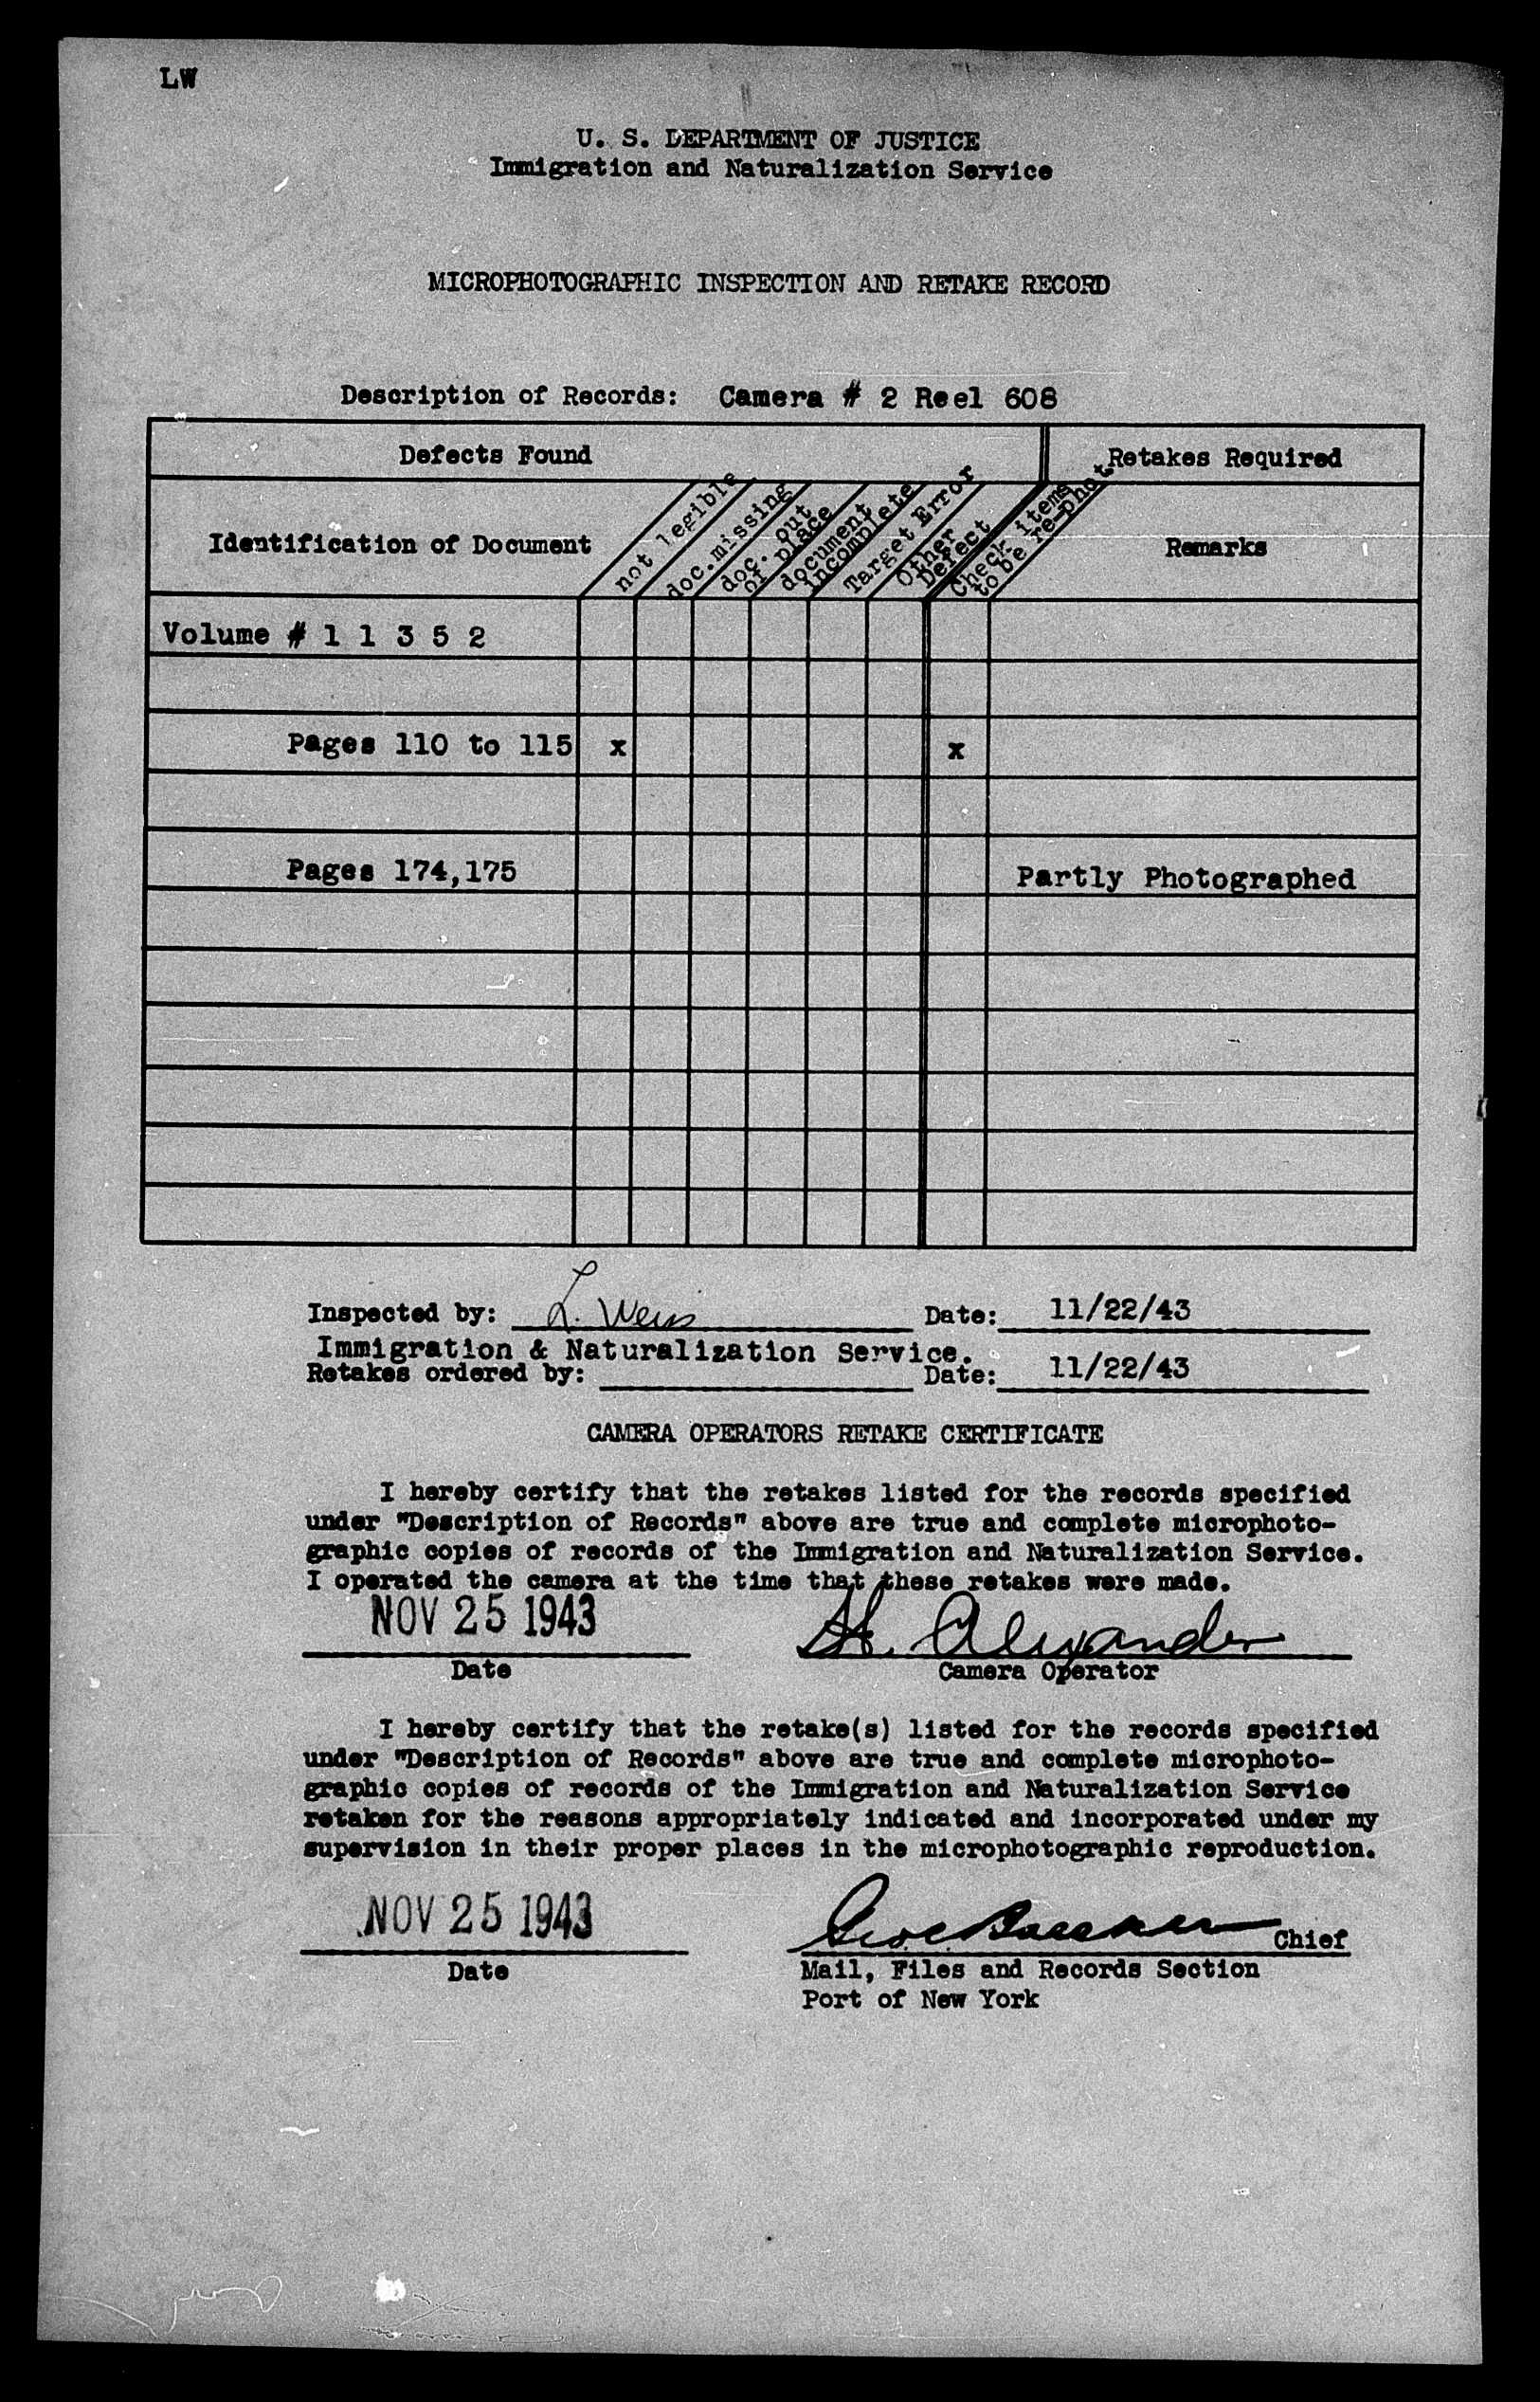 LW
U. S. DEPARTMENT OF JUSTICE
Immigration and Naturalization Service
MICROPHOTOGRAPHIC INSPECTION AND RETAKE RECORD
Description of Records: Camera # 2 Reel 608
Defects Found
Retakes Required
Identification of Document
not legible
doc.missing
doc. out
of place
document
incomplete
Target Error
Other
Defect
Check items
to be re-phot.
Remarks
Volume # 1 1 3 5 2
Pages 110 to 115 x x
Pages 174,175 Partly Photographed
Inspected by: L. Weis Date: 11/22/43
Immigration & Naturalization Service.
Retakes ordered by: Date: 11/22/43
CAMERA OPERATORS RETAKE CERTIFICATE
I hereby certify that the retakes listed for the records specified
under "Description of Records" above are true and complete microphoto-
graphic copies of records of the Immigration and Naturalization Service.
I operated the camera at the time that these retakes were made.
NOV 25 1943 H. Alexander
Date Camera Operator
I hereby certify that the retake(s) listed for the records specified
under "Description of Records" above are true and complete microphoto-
graphic copies of records of the Immigration and Naturalization Service
retaken for the reasons appropriately indicated and incorporated under my
supervision in their proper places in the microphotographic reproduction.
NOV 25 1943 Chief
Date Mail, Files and Records Section
Port of New York